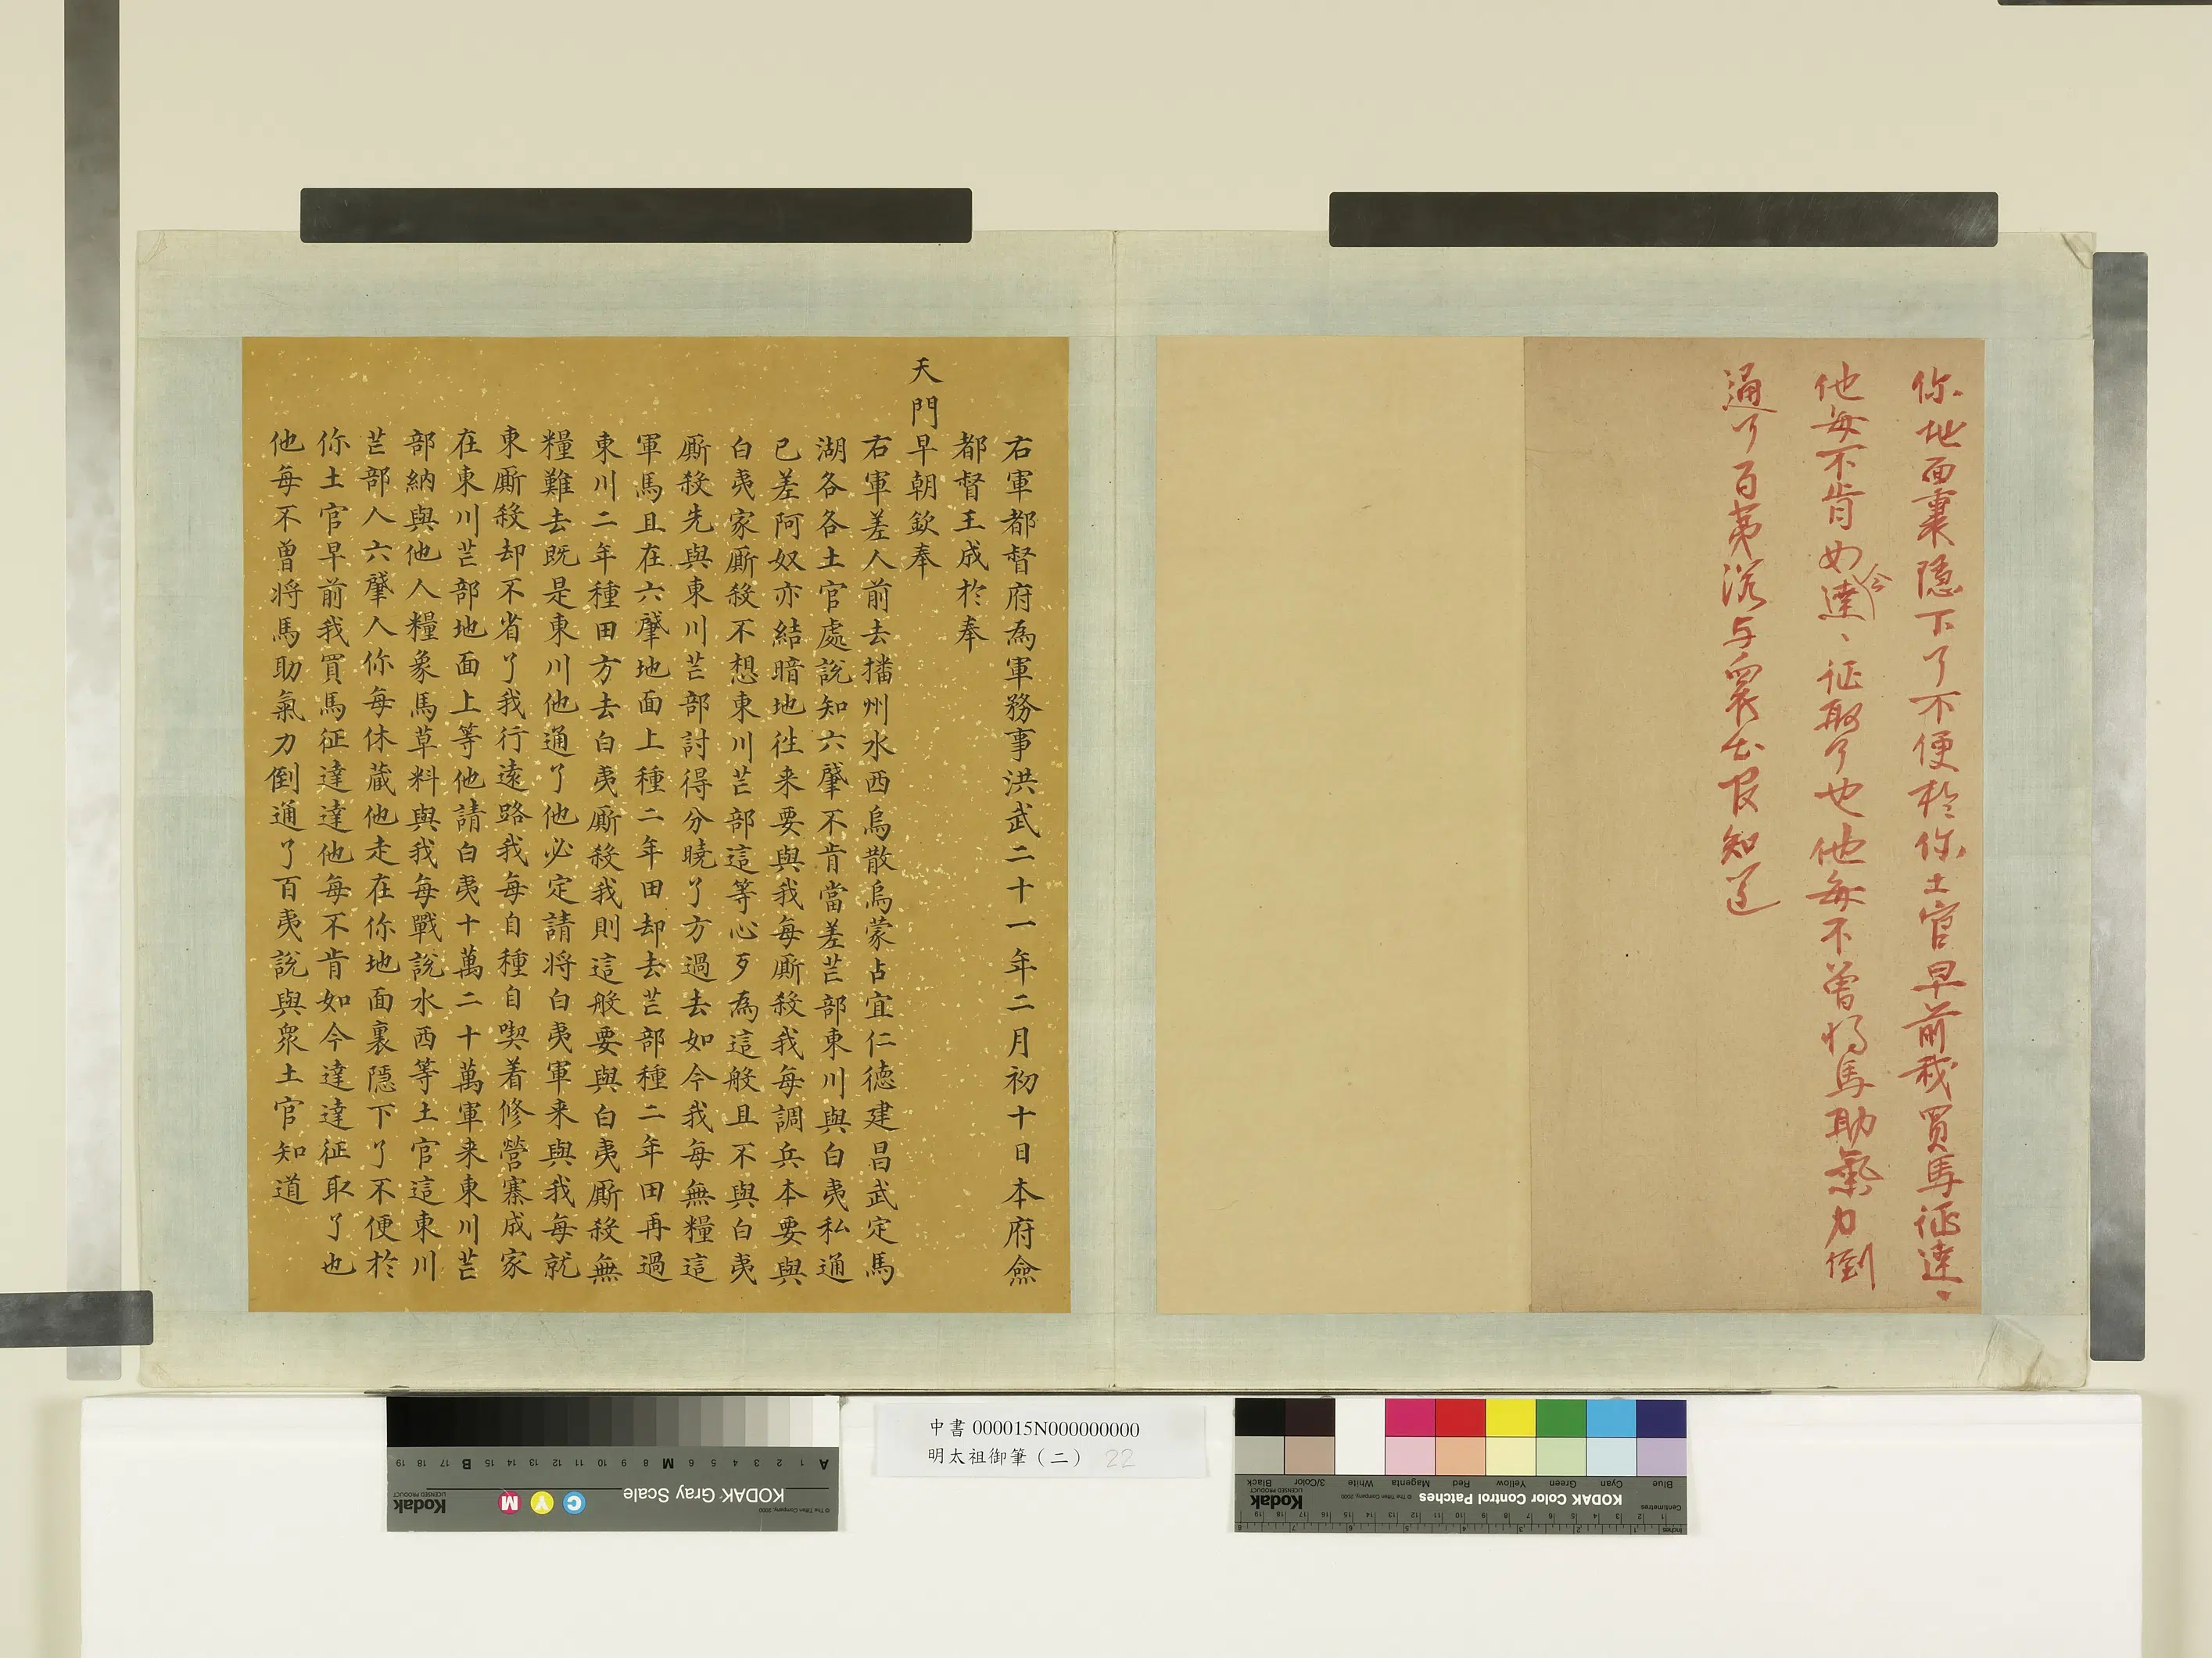 你地面裏隱下了不便於你土官早前我買馬征達〻
他每不肯如今達〻征取了也他每不曾將馬助氣力倒
通了百夷說与衆土官知道
右軍都督府為軍務事洪武二十一年二月初十日本府僉
都督王成於奉
天門早朝欽奉
右軍差人前去播州水西烏散烏蒙占宜仁德建昌武定馬
湖各各土官處說知六肇不肯當差芒部東川與白夷私通
已差阿奴亦結暗地徃来要與我每廝殺我每調兵本要與
白夷家廝殺不想東川芒部這等心歹為這般且不與白夷
廝殺先與東川芒部討得分曉了方過去如今我每無糧這
軍馬且在六肇地面上種二年田却去芒部種二年田再過
東川二年種田方去白夷廝殺我則這般要與白夷廝殺無
糧難去既是東川他通了他必定請將白夷軍来與我每就
東廝殺却不省了我行遠路我每自種自喫着修營寨成家
在東川芒部地面上等他請白夷十萬二十萬軍来東川芒
部納與他人糧象馬草料與我每戰說水西等土官這東川
芒部人六肇人你每休藏他走在你地面裏隱下了不便於
你土官早前我買馬征達達他每不肯如今達達征取了也
他每不曾將馬助氣力倒通了百夷說與衆土官知道
中書 000015N000000000
明太祖御筆（二） 22
KODAK Gray Scale
Kodak
LICENSED PRODUCT
C Y M
© The Tiffen Company, 2000
A 1 2 3 4 5 6 M 8 9 10 11 12 13 14 15 B 17 18 19
KODAK Color Control Patches
Kodak
LICENSED PRODUCT
© The Tiffen Company, 2000
Blue Cyan Green Yellow Red Magenta White 3/Color Black
Centimetres
Inches